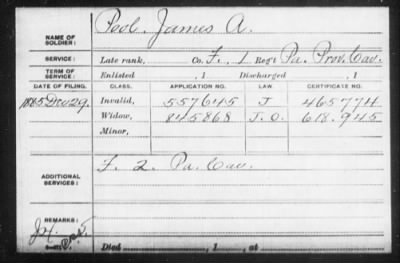 NAME OF SOLDIER: Pool, James A.
SERVICE: Late rank, Co. F., 1 Reg't Pa. Prov. Cav.
TERM OF SERVICE: Enlisted , 1 Discharged , 1
DATE OF FILING. CLASS. APPLICATION NO. LAW. CERTIFICATE NO.
1885 Dec 29. Invalid, 557645 J 465774
Widow, 845868 J.O. 618.945
Minor,
ADDITIONAL SERVICES: F. 2. Pa. Cav.
REMARKS:
Died , 1 , at